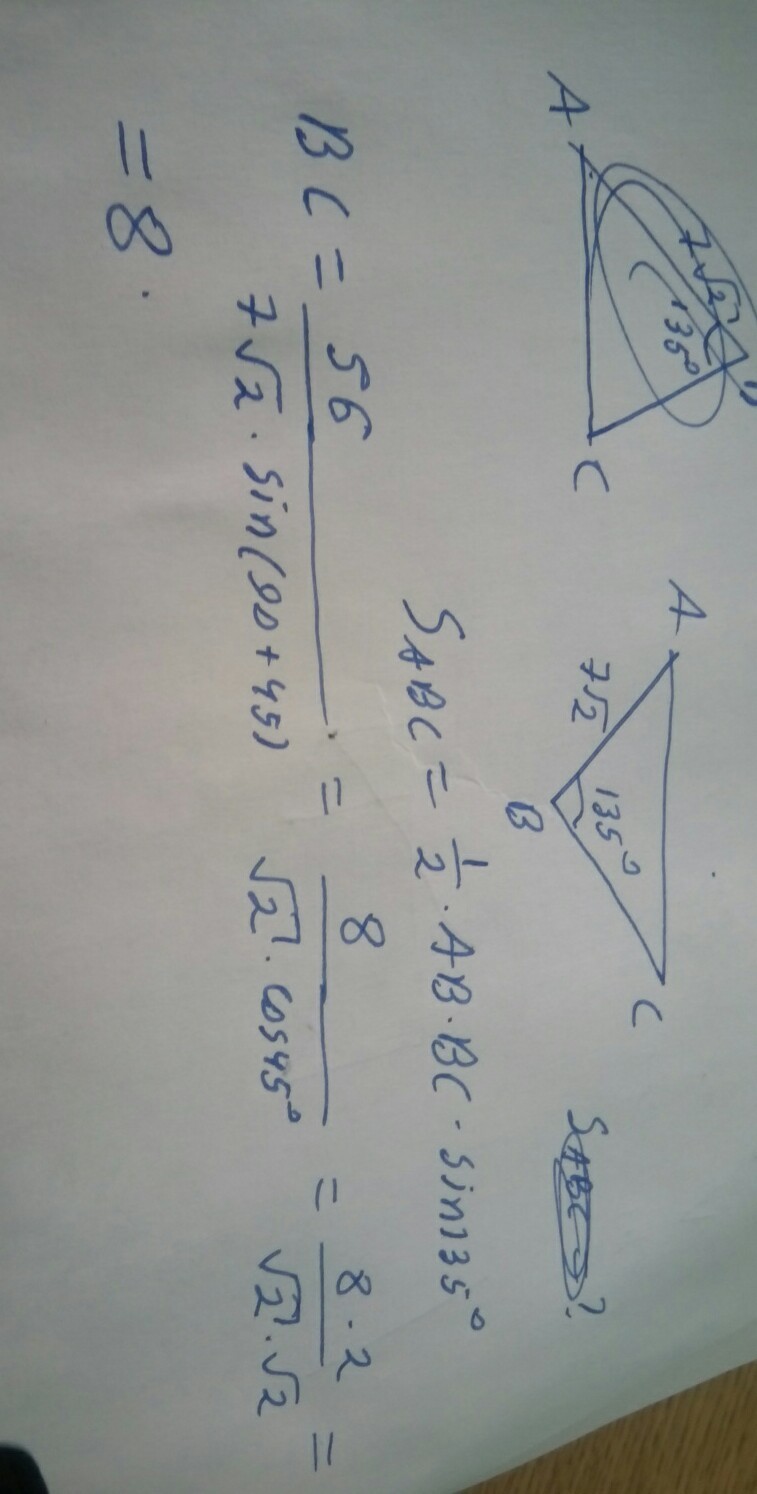 A 7√2 135° C
A 7√2 135° B C
S ABC ?
S ABC = 1/2 · AB · BC · sin135°
BC = 56 / 7√2 · sin(90+45) = 8 / √2 · cos45° = 8 · 2 / √2 · √2 =
= 8.